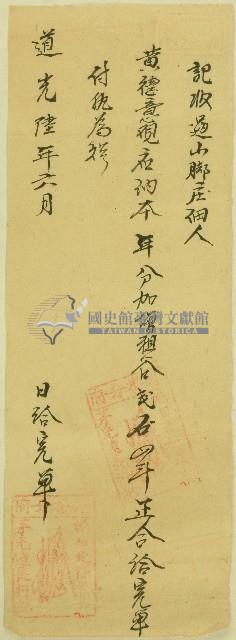 記收過山腳庄佃人
黃德章額應納本年分加增租谷弍石四斗正合給完單
付執為炤
道光陸年六月　日給完單
國史館臺灣文獻館
TAIWAN HISTORICA